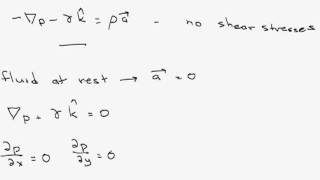 -∇p - γk̂ = ρa⃗ - no shear stresses
fluid at rest → a⃗ = 0
∇p + γk̂ = 0
∂p/∂x = 0 ∂p/∂y = 0